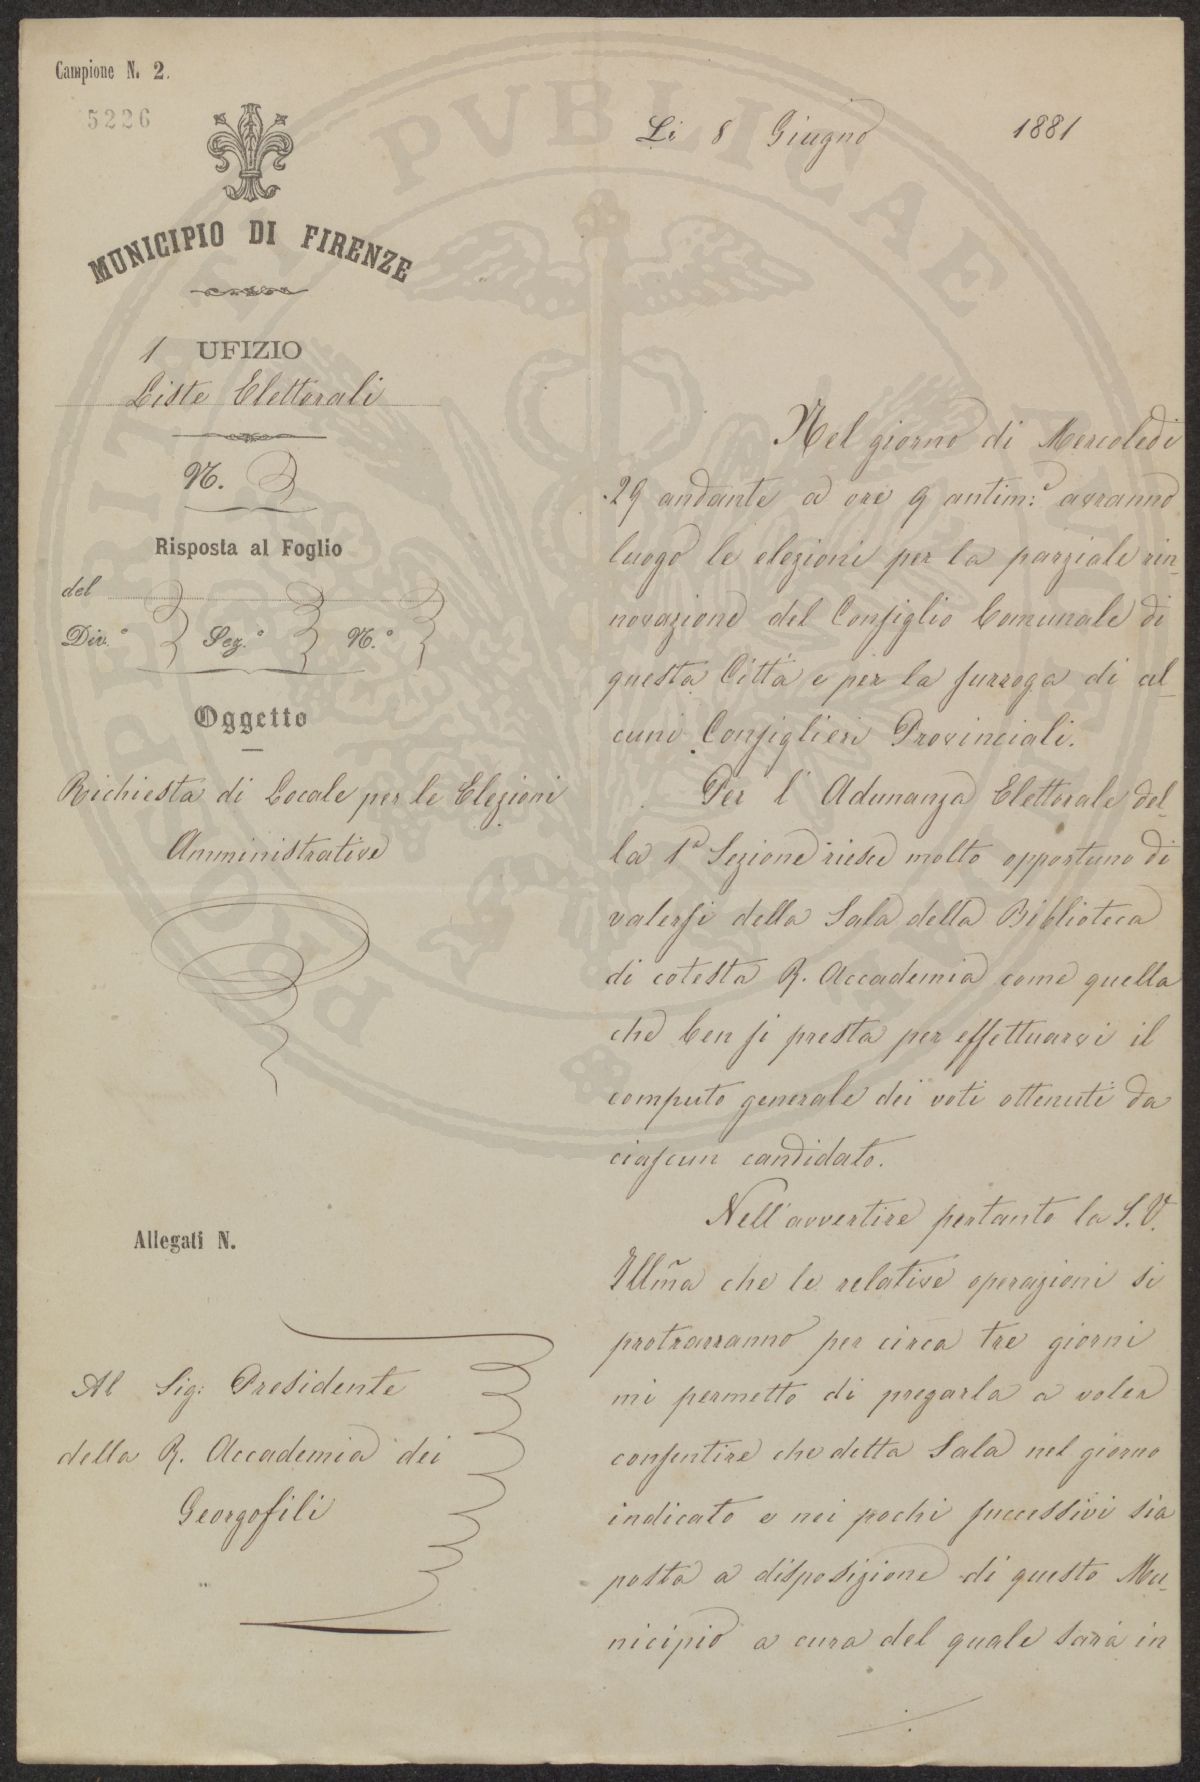 Campione N. 2.
5226
MUNICIPIO DI FIRENZE
1 UFIZIO
Liste Elettorali
N.
Risposta al Foglio
del
Div.e Sez.e N.o
Oggetto
Richiesta di Locale per le Elezioni
Amministrative
Allegati N.
Al Sig: Presidente
della R. Accademia dei
Georgofili
Li 8 Giugno 1881
Nel giorno di Mercoledi
29 andante a ore 9 antim:e avranno
luogo le elezioni per la parziale rin-
novazione del Consiglio Comunale di
questa Città e per la surroga di al-
cuni Consiglieri Provinciali.
Per l'Adunanza Elettorale del-
la 1a Sezione riesce molto opportuno di
valersi della Sala della Biblioteca
di cotesta R. Accademia come quella
che ben si presta per effettuarvi il
computo generale dei voti ottenuti da
ciascun candidato.
Nell'avvertire pertanto la S.V.
Illm̃a che le relative operazioni si
protrarranno per circa tre giorni
mi permetto di pregarla a voler
consentire che detta Sala nel giorno
indicato e nei pochi successivi sia
posta a disposizione di questo Mu-
nicipio a cura del quale sarà in
PROSPERITATI PUBLICAE AUGENDAE